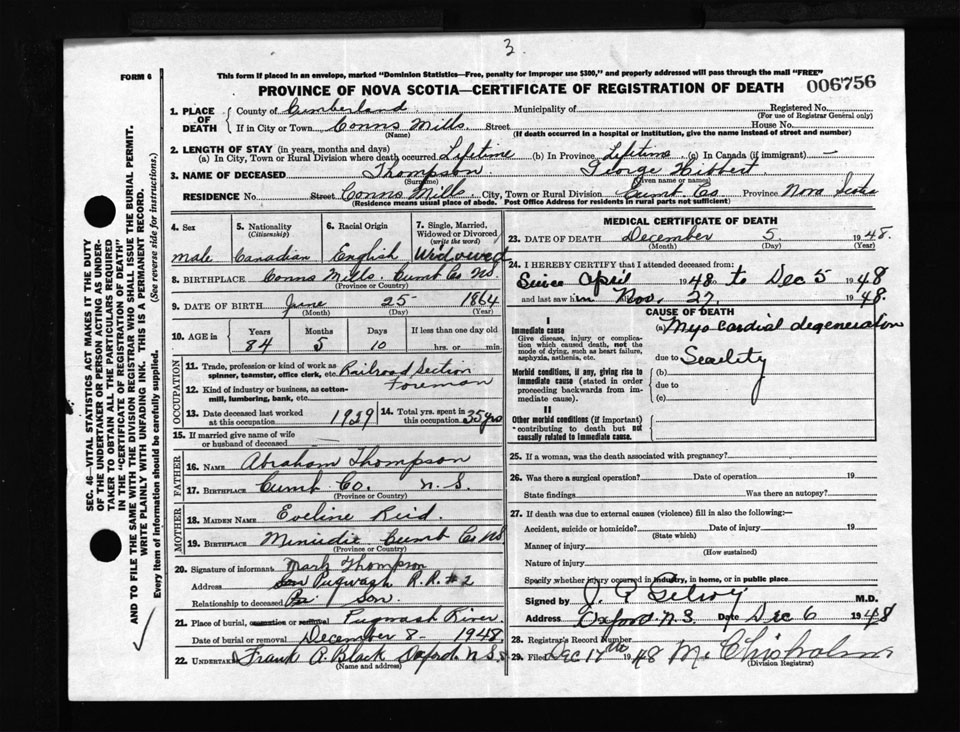 3
FORM 6
This form if placed in an envelope, marked "Dominion Statistics—Free, penalty for improper use $300," and properly addressed will pass through the mail "FREE"
PROVINCE OF NOVA SCOTIA—CERTIFICATE OF REGISTRATION OF DEATH 006756
1. PLACE OF DEATH County of Cumberland Municipality of Registered No.
(For use of Registrar General only)
If in City or Town Conns Mills Street House No.
(Name) (If death occurred in a hospital or institution, give the name instead of street and number)
2. LENGTH OF STAY (in years, months and days)
(a) In City, Town or Rural Division where death occurred Lifetime (b) In Province Lifetime (c) In Canada (if immigrant) —
3. NAME OF DECEASED Thompson George Hibbert
(Surname) (Given name or names)
RESIDENCE No. Street Conns Mills City, Town or Rural Division Cumb. Co. Province Nova Scotia
(Residence means usual place of abode. Post Office Address for residents in rural parts not sufficient)
SEC. 46—VITAL STATISTICS ACT MAKES IT THE DUTY
OF THE UNDERTAKER OR PERSON ACTING AS UNDER-
TAKER TO OBTAIN ALL THE PARTICULARS REQUIRED
IN THE "CERTIFICATE OF REGISTRATION OF DEATH"
AND TO FILE THE SAME WITH THE DIVISION REGISTRAR WHO SHALL ISSUE THE BURIAL PERMIT.
WRITE PLAINLY WITH UNFADING INK. THIS IS A PERMANENT RECORD.
Every item of information should be carefully supplied. (See reverse side for instructions.)
4. Sex 5. Nationality (Citizenship) 6. Racial Origin 7. Single, Married, Widowed or Divorced (write the word)
male Canadian English Widowed
8. BIRTHPLACE Conns Mills. Cumb Co NS.
(Province or Country)
9. DATE OF BIRTH June 25 1864
(Month) (Day) (Year)
10. AGE in Years Months Days If less than one day old
84 5 10 hrs. or min.
OCCUPATION
11. Trade, profession or kind of work as spinner, teamster, office clerk, etc. Railroad Section
Foreman
12. Kind of industry or business, as cotton-mill, lumbering, bank, etc.
13. Date deceased last worked at this occupation 1929 14. Total yrs. spent in this occupation 35 yrs
15. If married give name of wife or husband of deceased
FATHER
16. NAME Abraham Thompson
17. BIRTHPLACE Cumb Co. N.S.
(Province or Country)
MOTHER
18. MAIDEN NAME Eveline Reid.
19. BIRTHPLACE Cumb Co NS
(Province or Country)
20. Signature of informant Mark Thompson
Address Pugwash R.R. #2
Relationship to deceased son.
21. Place of burial, cremation or removal Pugwash River
Date of burial or removal December 8 - 1948.
22. Undertaker Frank A. Black Oxford. N.S.
(Name and address)
MEDICAL CERTIFICATE OF DEATH
23. DATE OF DEATH December 5 1948.
(Month) (Day) (Year)
24. I HEREBY CERTIFY that I attended deceased from:
Since April 1948 to Dec 5 1948
and last saw him Nov. 27. 1948.
CAUSE OF DEATH
I
Immediate cause
Give disease, injury or complication which caused death, not the mode of dying, such as heart failure, asphyxia, asthenia, etc.
(a) Myocardial degeneration
due to Senility
Morbid conditions, if any, giving rise to immediate cause (stated in order proceeding backwards from immediate cause).
(b)
due to
(c)
II
Other morbid conditions (if important) contributing to death but not causally related to immediate cause.
25. If a woman, was the death associated with pregnancy?
26. Was there a surgical operation? Date of operation 19
State findings Was there an autopsy?
27. If death was due to external causes (violence) fill in also the following:—
Accident, suicide or homicide? Date of injury 19
(State which)
Manner of injury
(How sustained)
Nature of injury
Specify whether injury occurred in industry, in home, or in public place
Signed by M.D.
Address Oxford N.S. Date Dec 6 1948
28. Registrar's Record Number
29. Filed Dec 1948 M. Chisholm
(Division Registrar)